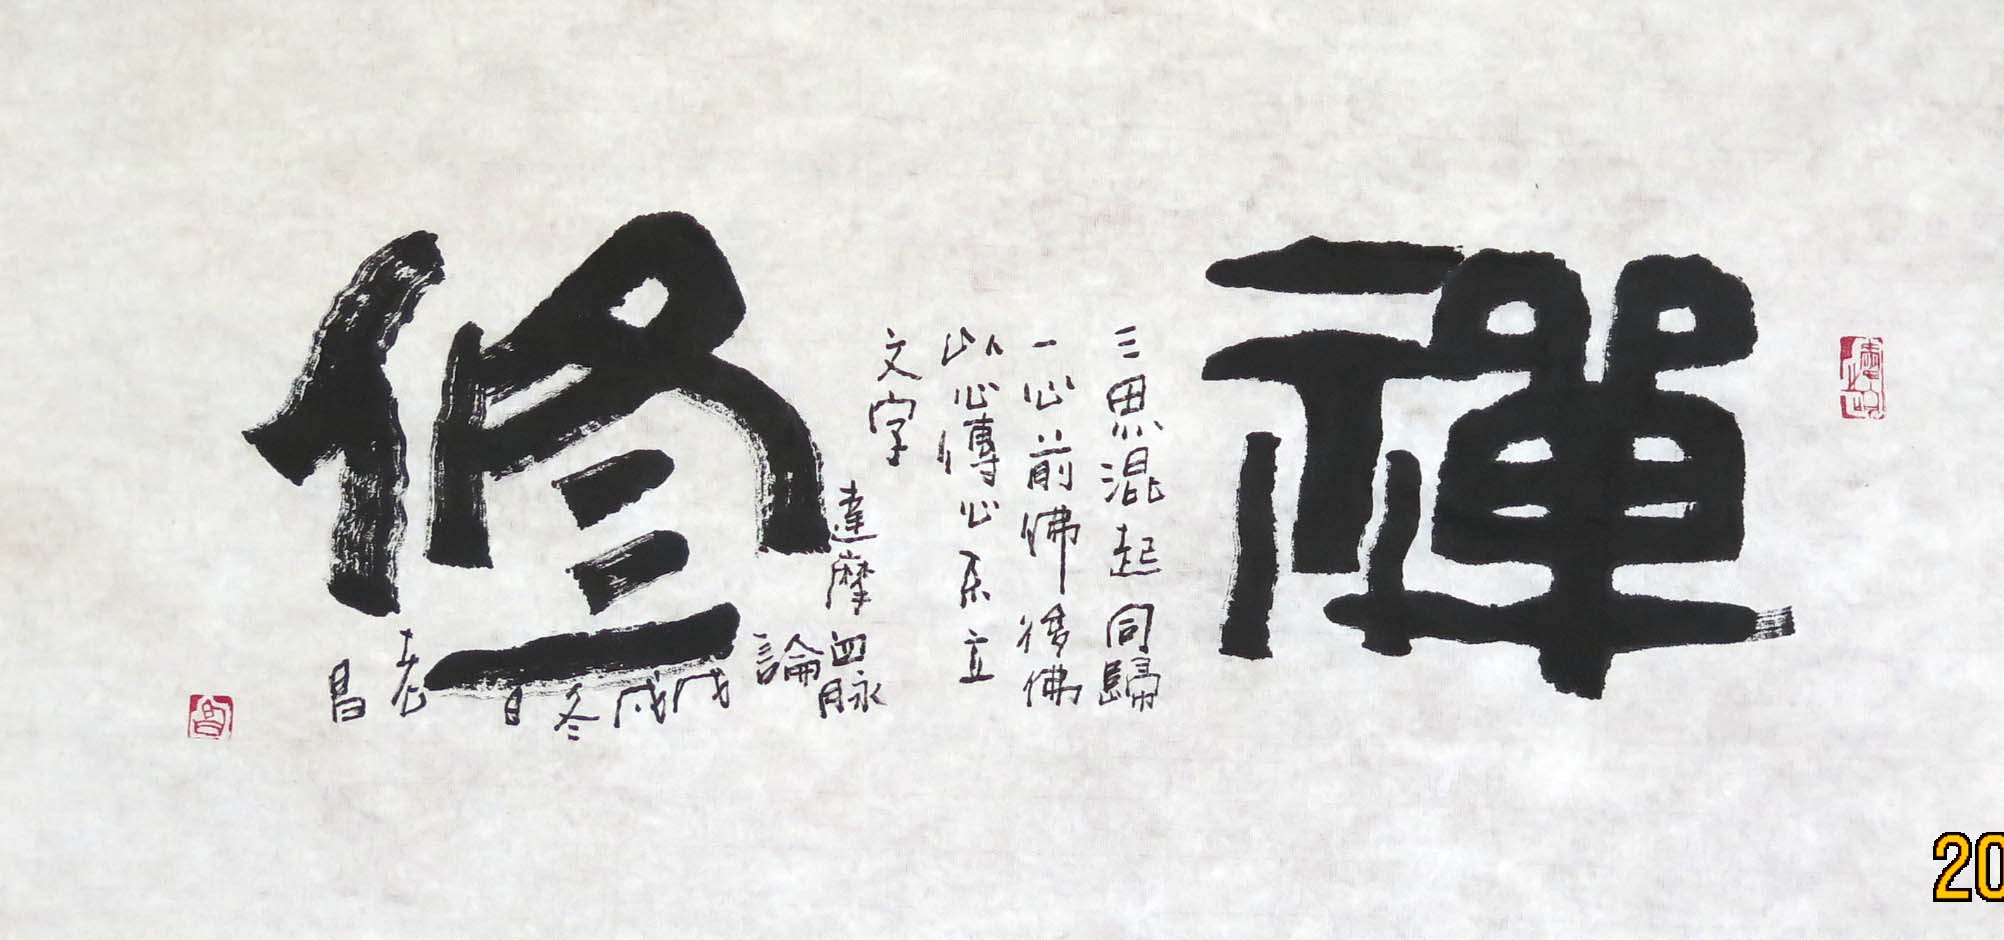 禪
三界混起同歸
一心前佛後佛
以心傳心不立
文字
達摩血脉
論
修
戊戌冬日
老昌
20